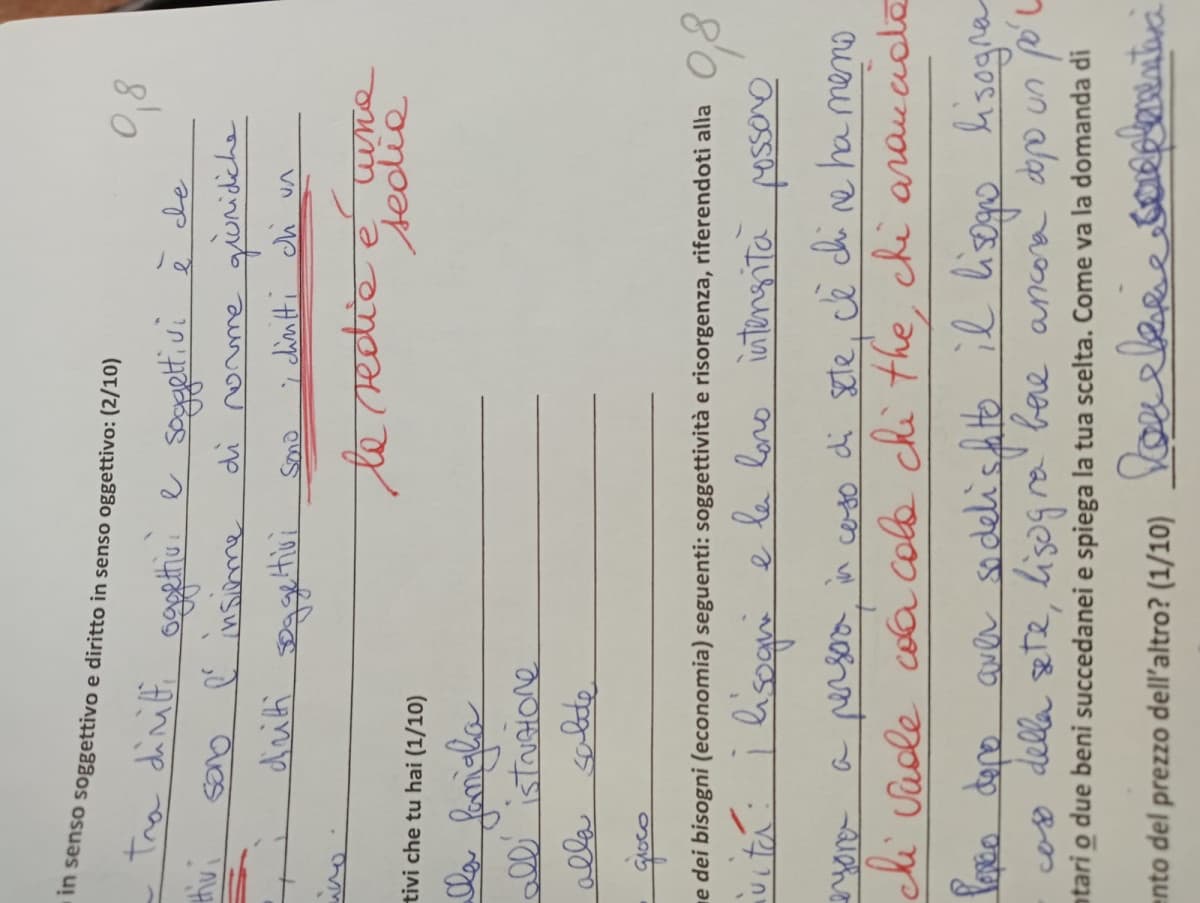 in senso soggettivo e diritto in senso oggettivo: (2/10)
0,8
tra diritti oggettivi e soggettivi è che
ttivi sono l'insieme di norme giuridiche
i diritti soggettivi sono i diritti di un
la sedia é una sedia
tivi che tu hai (1/10)
alla famiglia
all'istruzione
alla salute
gioco
e dei bisogni (economia) seguenti: soggettività e risorgenza, riferendoti alla
0,8
ività: i bisogni e la loro intensità possono
a persona, in caso di sete, c'è chi ne ha meno
chi vuole coca cola chi the, chi aranciata
dopo aver sodelisfatto il bisogno bisogna
caso della sete, bisogna bere ancora dopo un pó
ntari o due beni succedanei e spiega la tua scelta. Come va la domanda di
nto del prezzo dell'altro? (1/10)